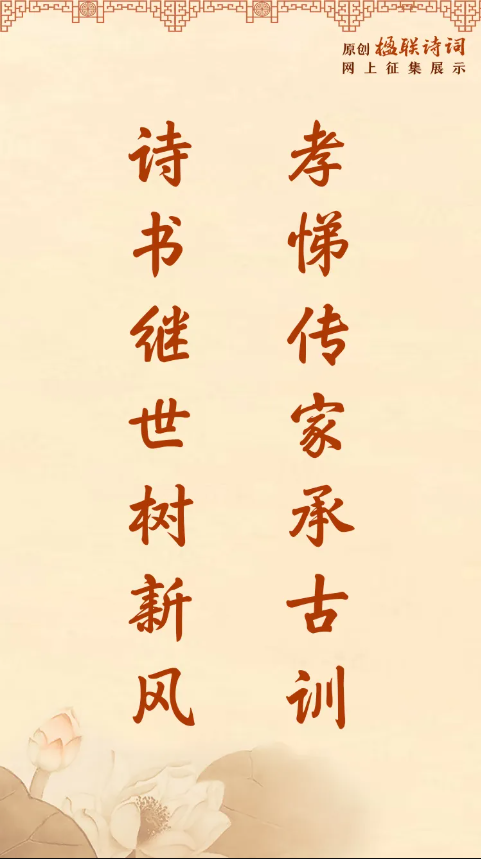 原创楹联诗词
网上征集展示
孝悌传家承古训
诗书继世树新风